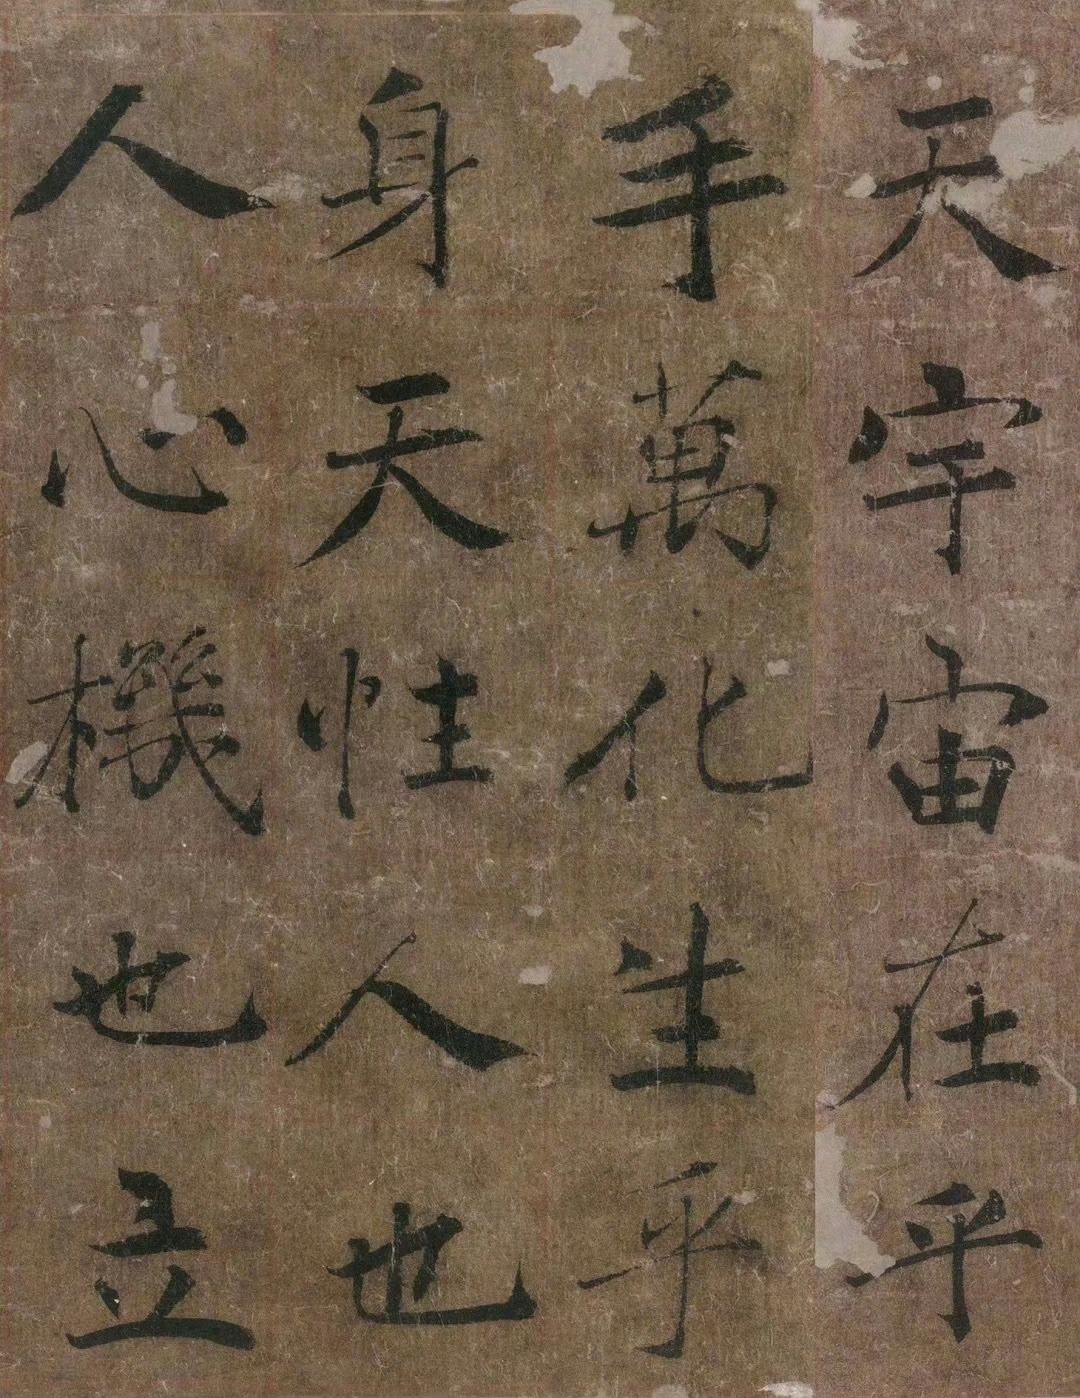 天宇宙在乎
手萬化生乎
身天性人也
人心機也立